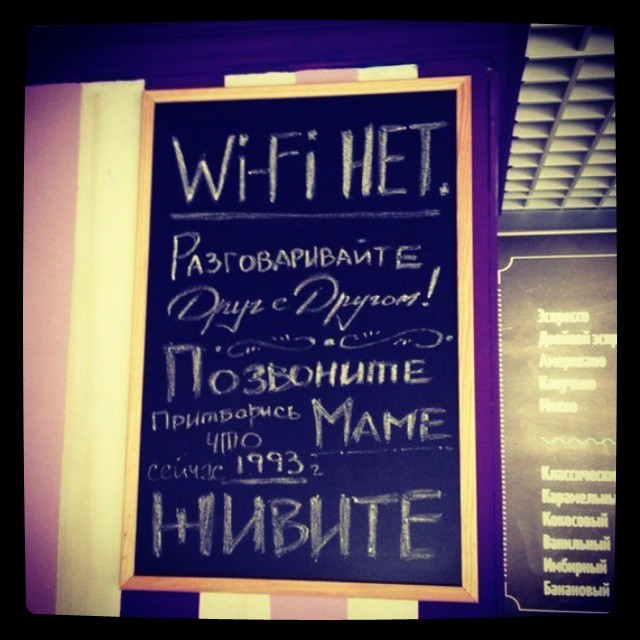 Wi-Fi НЕТ.
РАЗГОВАРИВАЙТЕ
Друг с Другом!
ПОЗВОНИТЕ
МАМЕ
Притворись
что
сейчас 1993 г
ЖИВИТЕ
Эспрессо
Двойной эспр
Американо
Капучино
Классически
Карамельн
Кокосовый
Ванильный
Имбирный
Банановый